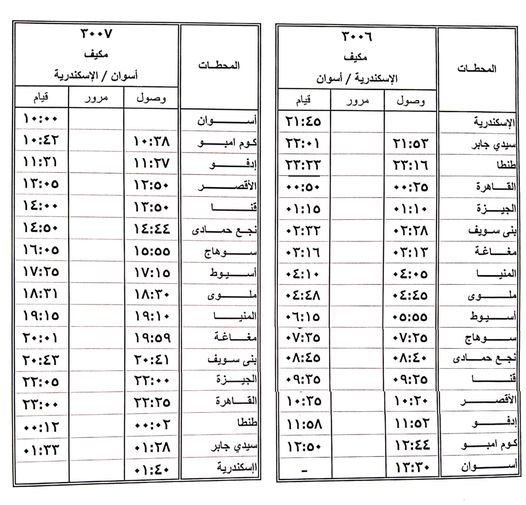 ٣٠٠٦
مكيف
المحطات
الإسكندرية / أسوان
وصول مرور قيام
الإسكندرية ٢١:٤٥
سيدي جابر ٢١:٥٣ ٢٢:٠١
طنطا ٢٣:١٦ ٢٣:٢٣
القاهرة ٠٠:٢٥ ٠٠:٥٠
الجيزة ٠١:١٠ ٠١:١٥
بنى سويف ٠٢:٢٨ ٠٢:٣٢
مغاغة ٠٣:١٣ ٠٣:١٦
المنيا ٠٤:٠٥ ٠٤:١٠
ملوى ٠٤:٤٥ ٠٤:٤٨
أسيوط ٠٥:٥٥ ٠٦:١٥
سوهاج ٠٧:٢٥ ٠٧:٣٥
نجع حمادى ٠٨:٤٠ ٠٨:٤٥
قنا ٠٩:٢٥ ٠٩:٣٥
الأقصر ١٠:٢٠ ١٠:٣٥
إدفو ١١:٥٢ ١١:٥٨
كوم امبو ١٢:٤٤ ١٢:٥٠
أسوان ١٣:٣٠ –
٣٠٠٧
مكيف
المحطات
أسوان / الإسكندرية
وصول مرور قيام
أسوان ١٠:٠٠
كوم امبو ١٠:٣٨ ١٠:٤٢
إدفو ١١:٢٧ ١١:٣١
الأقصر ١٢:٥٠ ١٣:٠٥
قنا ١٣:٥٠ ١٤:٠٠
نجع حمادى ١٤:٤٤ ١٤:٥٠
سوهاج ١٥:٥٥ ١٦:٠٥
أسيوط ١٧:١٥ ١٧:٢٥
ملوى ١٨:٣٠ ١٨:٣١
المنيا ١٩:١٠ ١٩:١٥
مغاغة ١٩:٥٩ ٢٠:٠١
بنى سويف ٢٠:٤١ ٢٠:٤٣
الجيزة ٢٢:٠٠ ٢٢:٠٥
القاهرة ٢٢:٢٥ ٢٣:٠٠
طنطا ٠٠:٠٢ ٠٠:١٢
سيدي جابر ٠١:٢٨ ٠١:٣٣
إسكندرية ٠١:٤٠